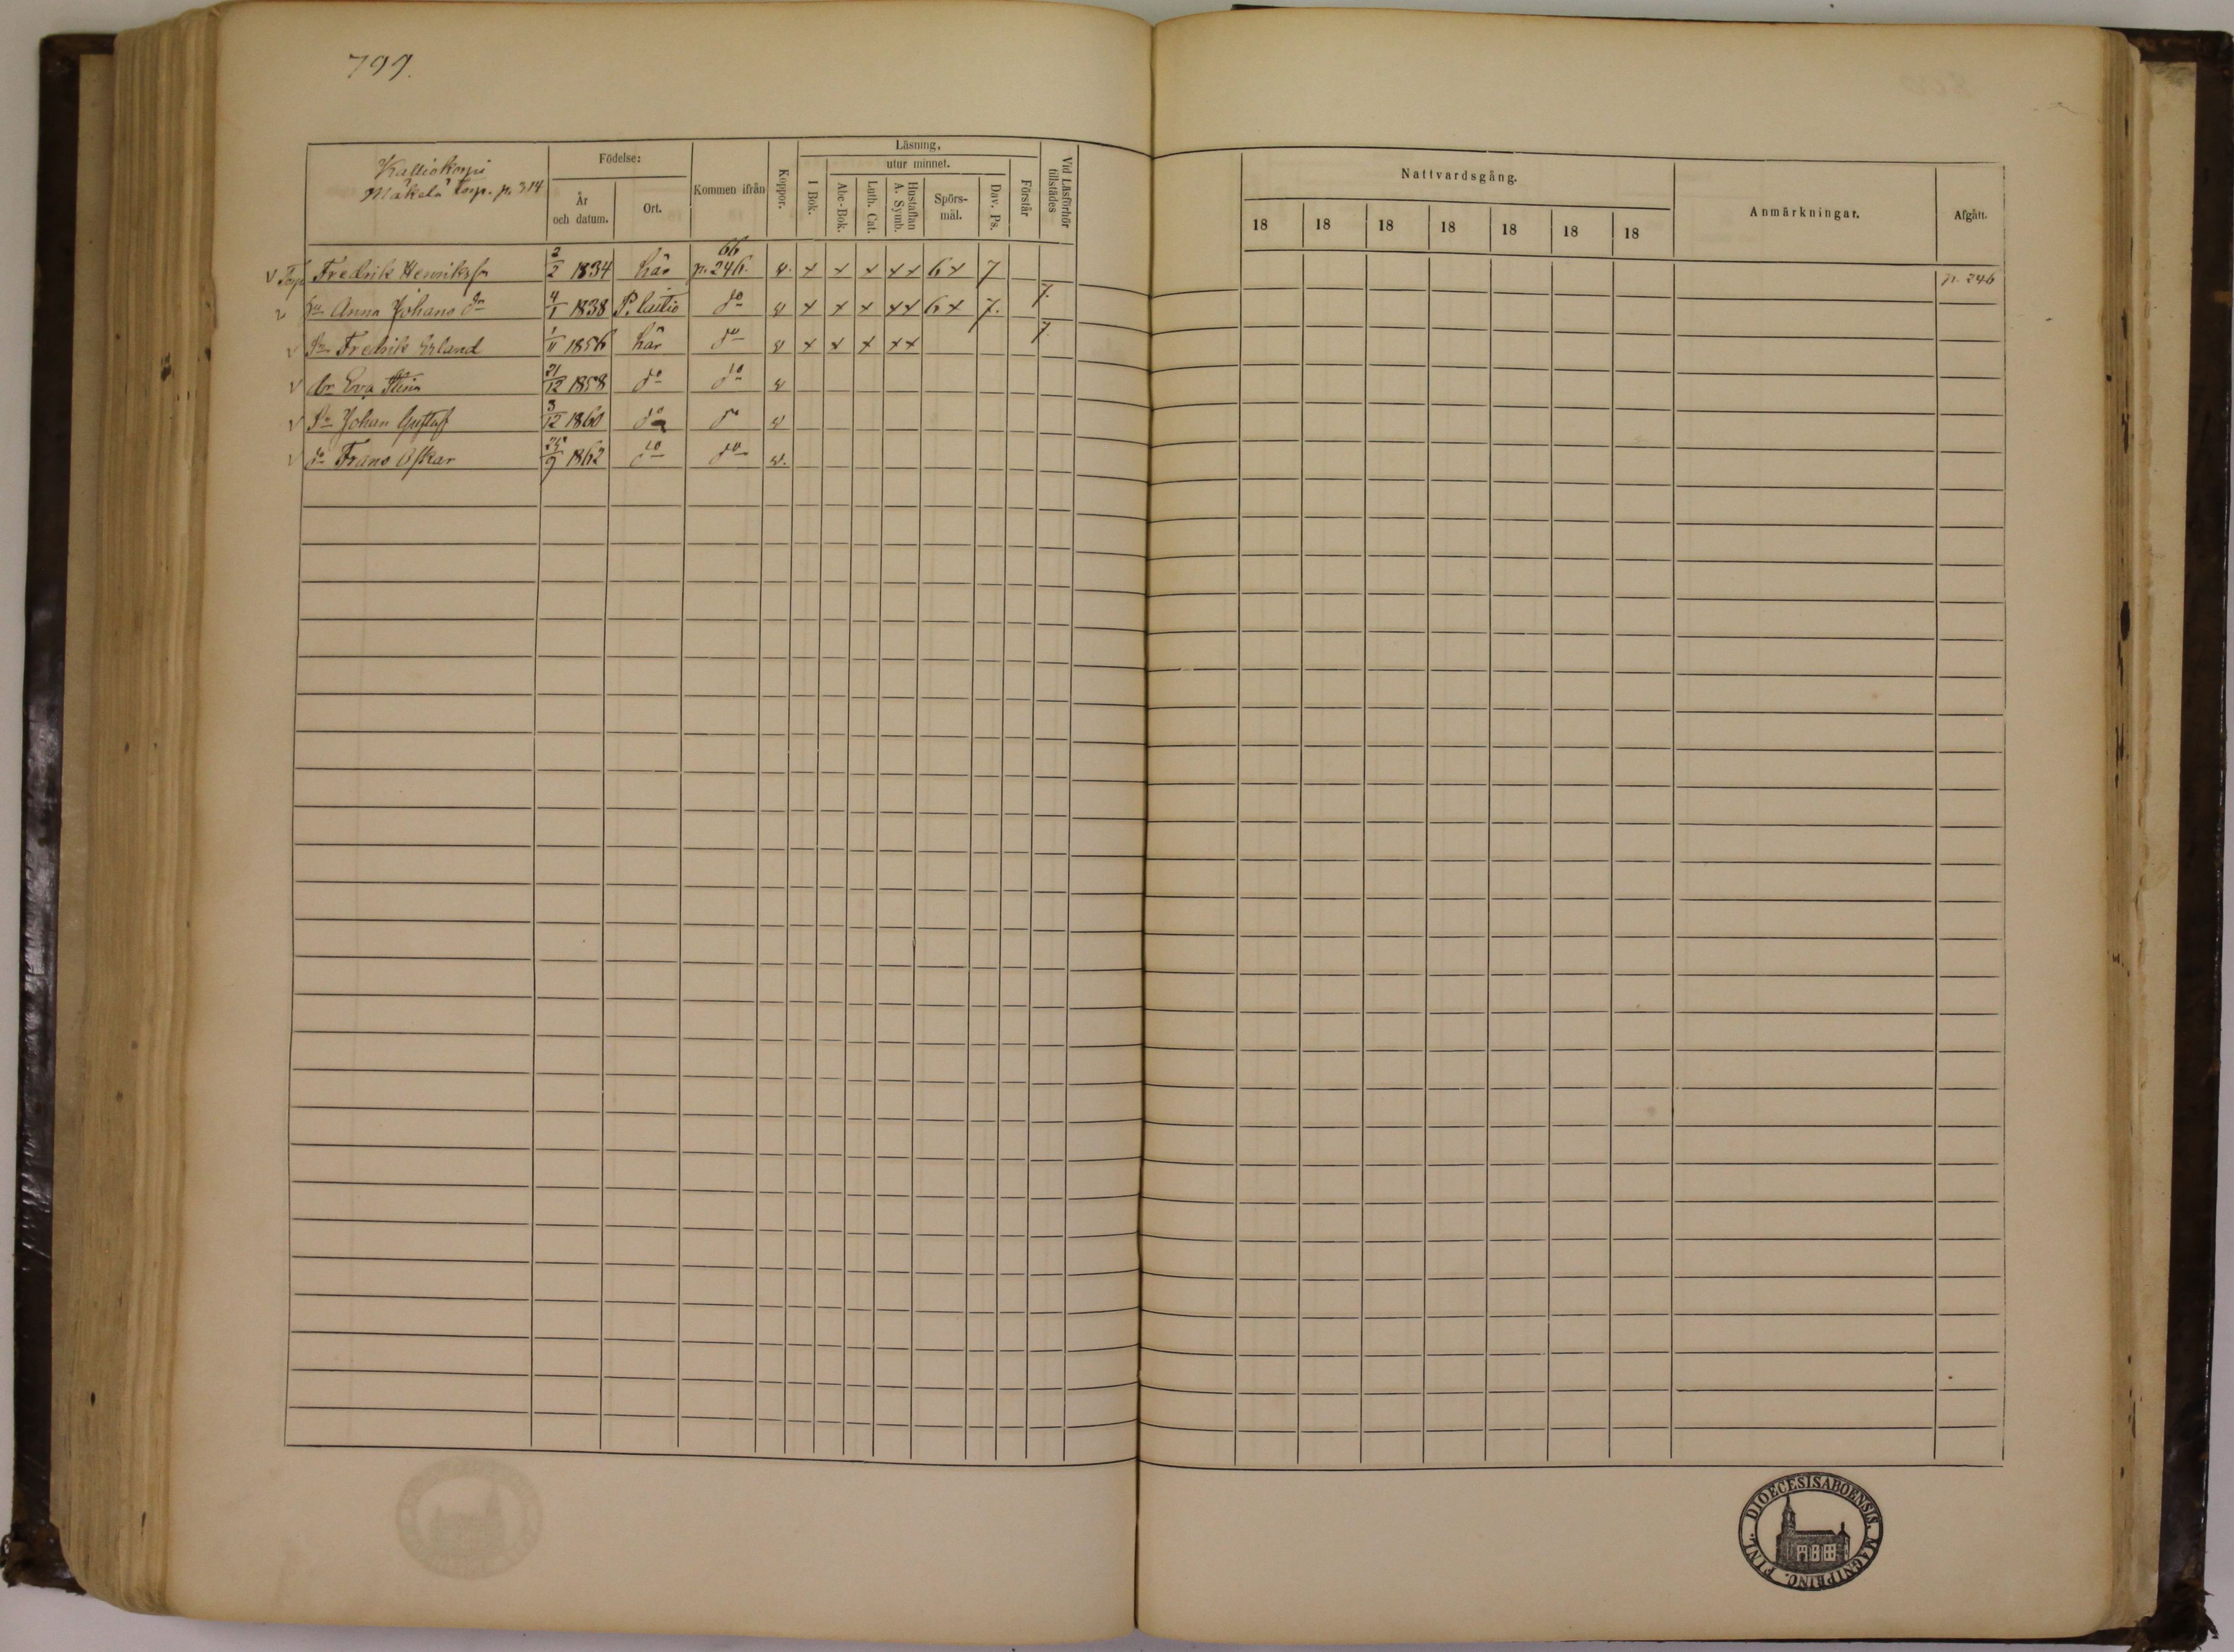 799.
Kalliokorpi
Mäkelä torp. p. 314
Födelse:
År och datum.
Ort.
Kommen ifrån
Koppor.
Läsning.
I Bok.
utur minnet.
Abc-Bok.
Luth. Cat.
Hustaflan A. Symb.
Spörs-mål.
Dav. Ps.
Förstår
Vid Läsförhör tillstädes
Nattvardsgång.
18 18 18 18 18 18 18
Anmärkningar.
Afgått.
66
v Torp Fredrik Henriksson 2/2 1834 här p. 246. v. x x x x x 6 x 7 p. 246
Hu Anna Johans dr 4/1 1838 P. do v x x x x x 6 x 7. 7.
v Sn Fredrik Erland 1/11 1856 här do v x x x x x 7
v dr Eva Stina 21/12 1858 do do v
v Sn Johan Gustaf 3/12 1860 do do v
v do Frans Oskar 25/9 1862 do do v.
DIOECESIS ABOENSIS. MAGNI PRINC. FINL.